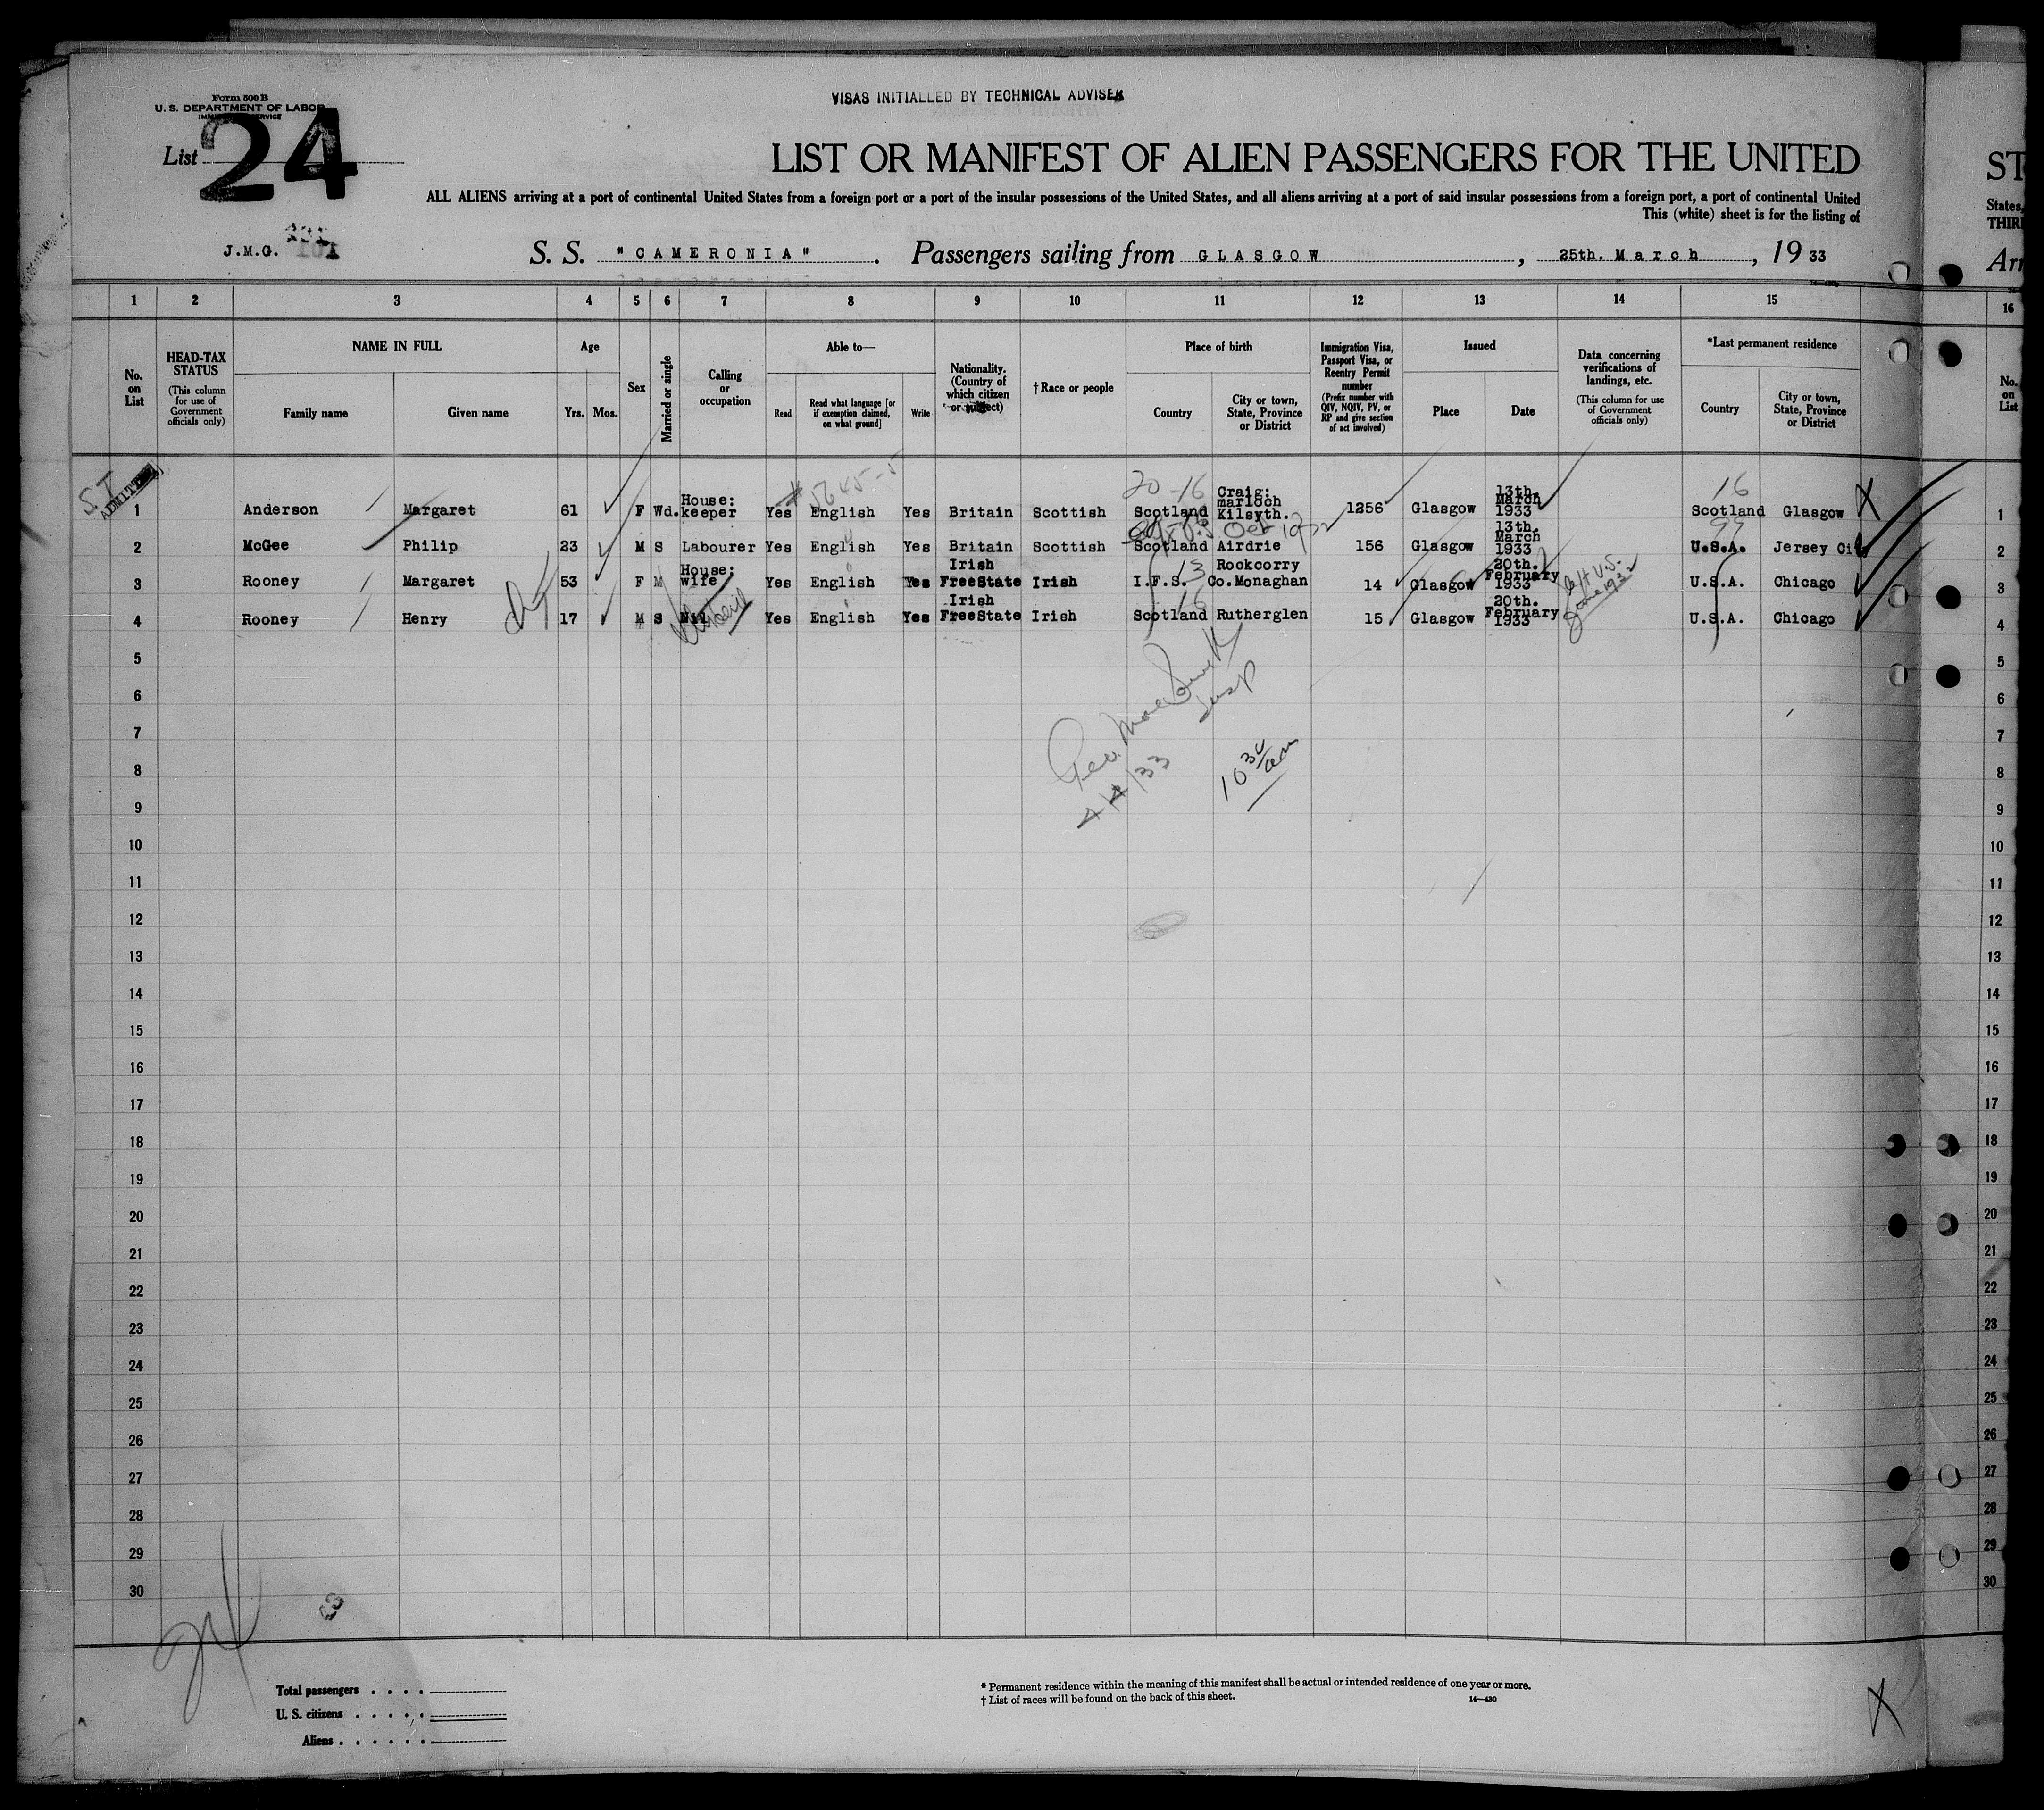 Form 500 B
U. S. DEPARTMENT OF LABOR
VISAS INITIALLED BY TECHNICAL ADVISER
List 24
LIST OR MANIFEST OF ALIEN PASSENGERS FOR THE UNITED
ST
ALL ALIENS arriving at a port of continental United States from a foreign port or a port of the insular possessions of the United States, and all aliens arriving at a port of said insular possessions from a foreign port, a port of continental United
States,
This (white) sheet is for the listing of
THIR
J.M.G.
S. S. "CAMERONIA". Passengers sailing from GLASGOW, 25th. March, 19 33
Arr
1 2 3 4 5 6 7 8 9 10 11 12 13 14 15 16
No. on List
HEAD-TAX STATUS
(This column for use of Government officials only)
NAME IN FULL
Family name Given name
Age
Yrs. Mos.
Sex
Married or single
Calling or occupation
Able to—
Read Read what language [or if exemption claimed, on what ground] Write
Nationality. (Country of which citizen or subject)
†Race or people
Place of birth
Country City or town, State, Province or District
Immigration Visa, Passport Visa, or Reentry Permit number
(Prefix number with QIV, NQIV, PV, or RP and give section of act involved)
Issued
Place Date
Data concerning verifications of landings, etc.
(This column for use of Government officials only)
*Last permanent residence
Country City or town, State, Province or District
No. on List
S.I.
20-16
16
1 Anderson Margaret 61 F Wd. House: keeper Yes English Yes Britain Scottish Scotland Craig: marloch Kilsyth. 1256 Glasgow 13th. March 1933 Scotland Glasgow X 1
Oct 1932
99
2 McGee Philip 23 M S Labourer Yes English Yes Britain Scottish Scotland Airdrie 156 Glasgow 13th. March 1933 U.S.A. Jersey City 2
3 Rooney Margaret 53 F M House: wife Yes English Yes Irish FreeState Irish I.F.S. 13 Rockcorry Co.Monaghan 14 Glasgow 20th. February 1933 U.S.A. Chicago 3
left U.S. June 1932
4 Rooney Henry 17 M S Nil Yes English Yes Irish FreeState Irish Scotland 16 Rutherglen 15 Glasgow 20th. February 1933 U.S.A. Chicago 4
5 5
6 6
Insp
7 7
8 8
4/4/33
10 30/am
9 9
10 10
11 11
12 12
13 13
14 14
15 15
16 16
17 17
18 18
19 19
20 20
21 21
22 22
23 23
24 24
25 25
26 26
27 27
28 28
29 29
30 30
24
Total passengers
U. S. citizens
Aliens
* Permanent residence within the meaning of this manifest shall be actual or intended residence of one year or more.
† List of races will be found on the back of this sheet.
14—430
X